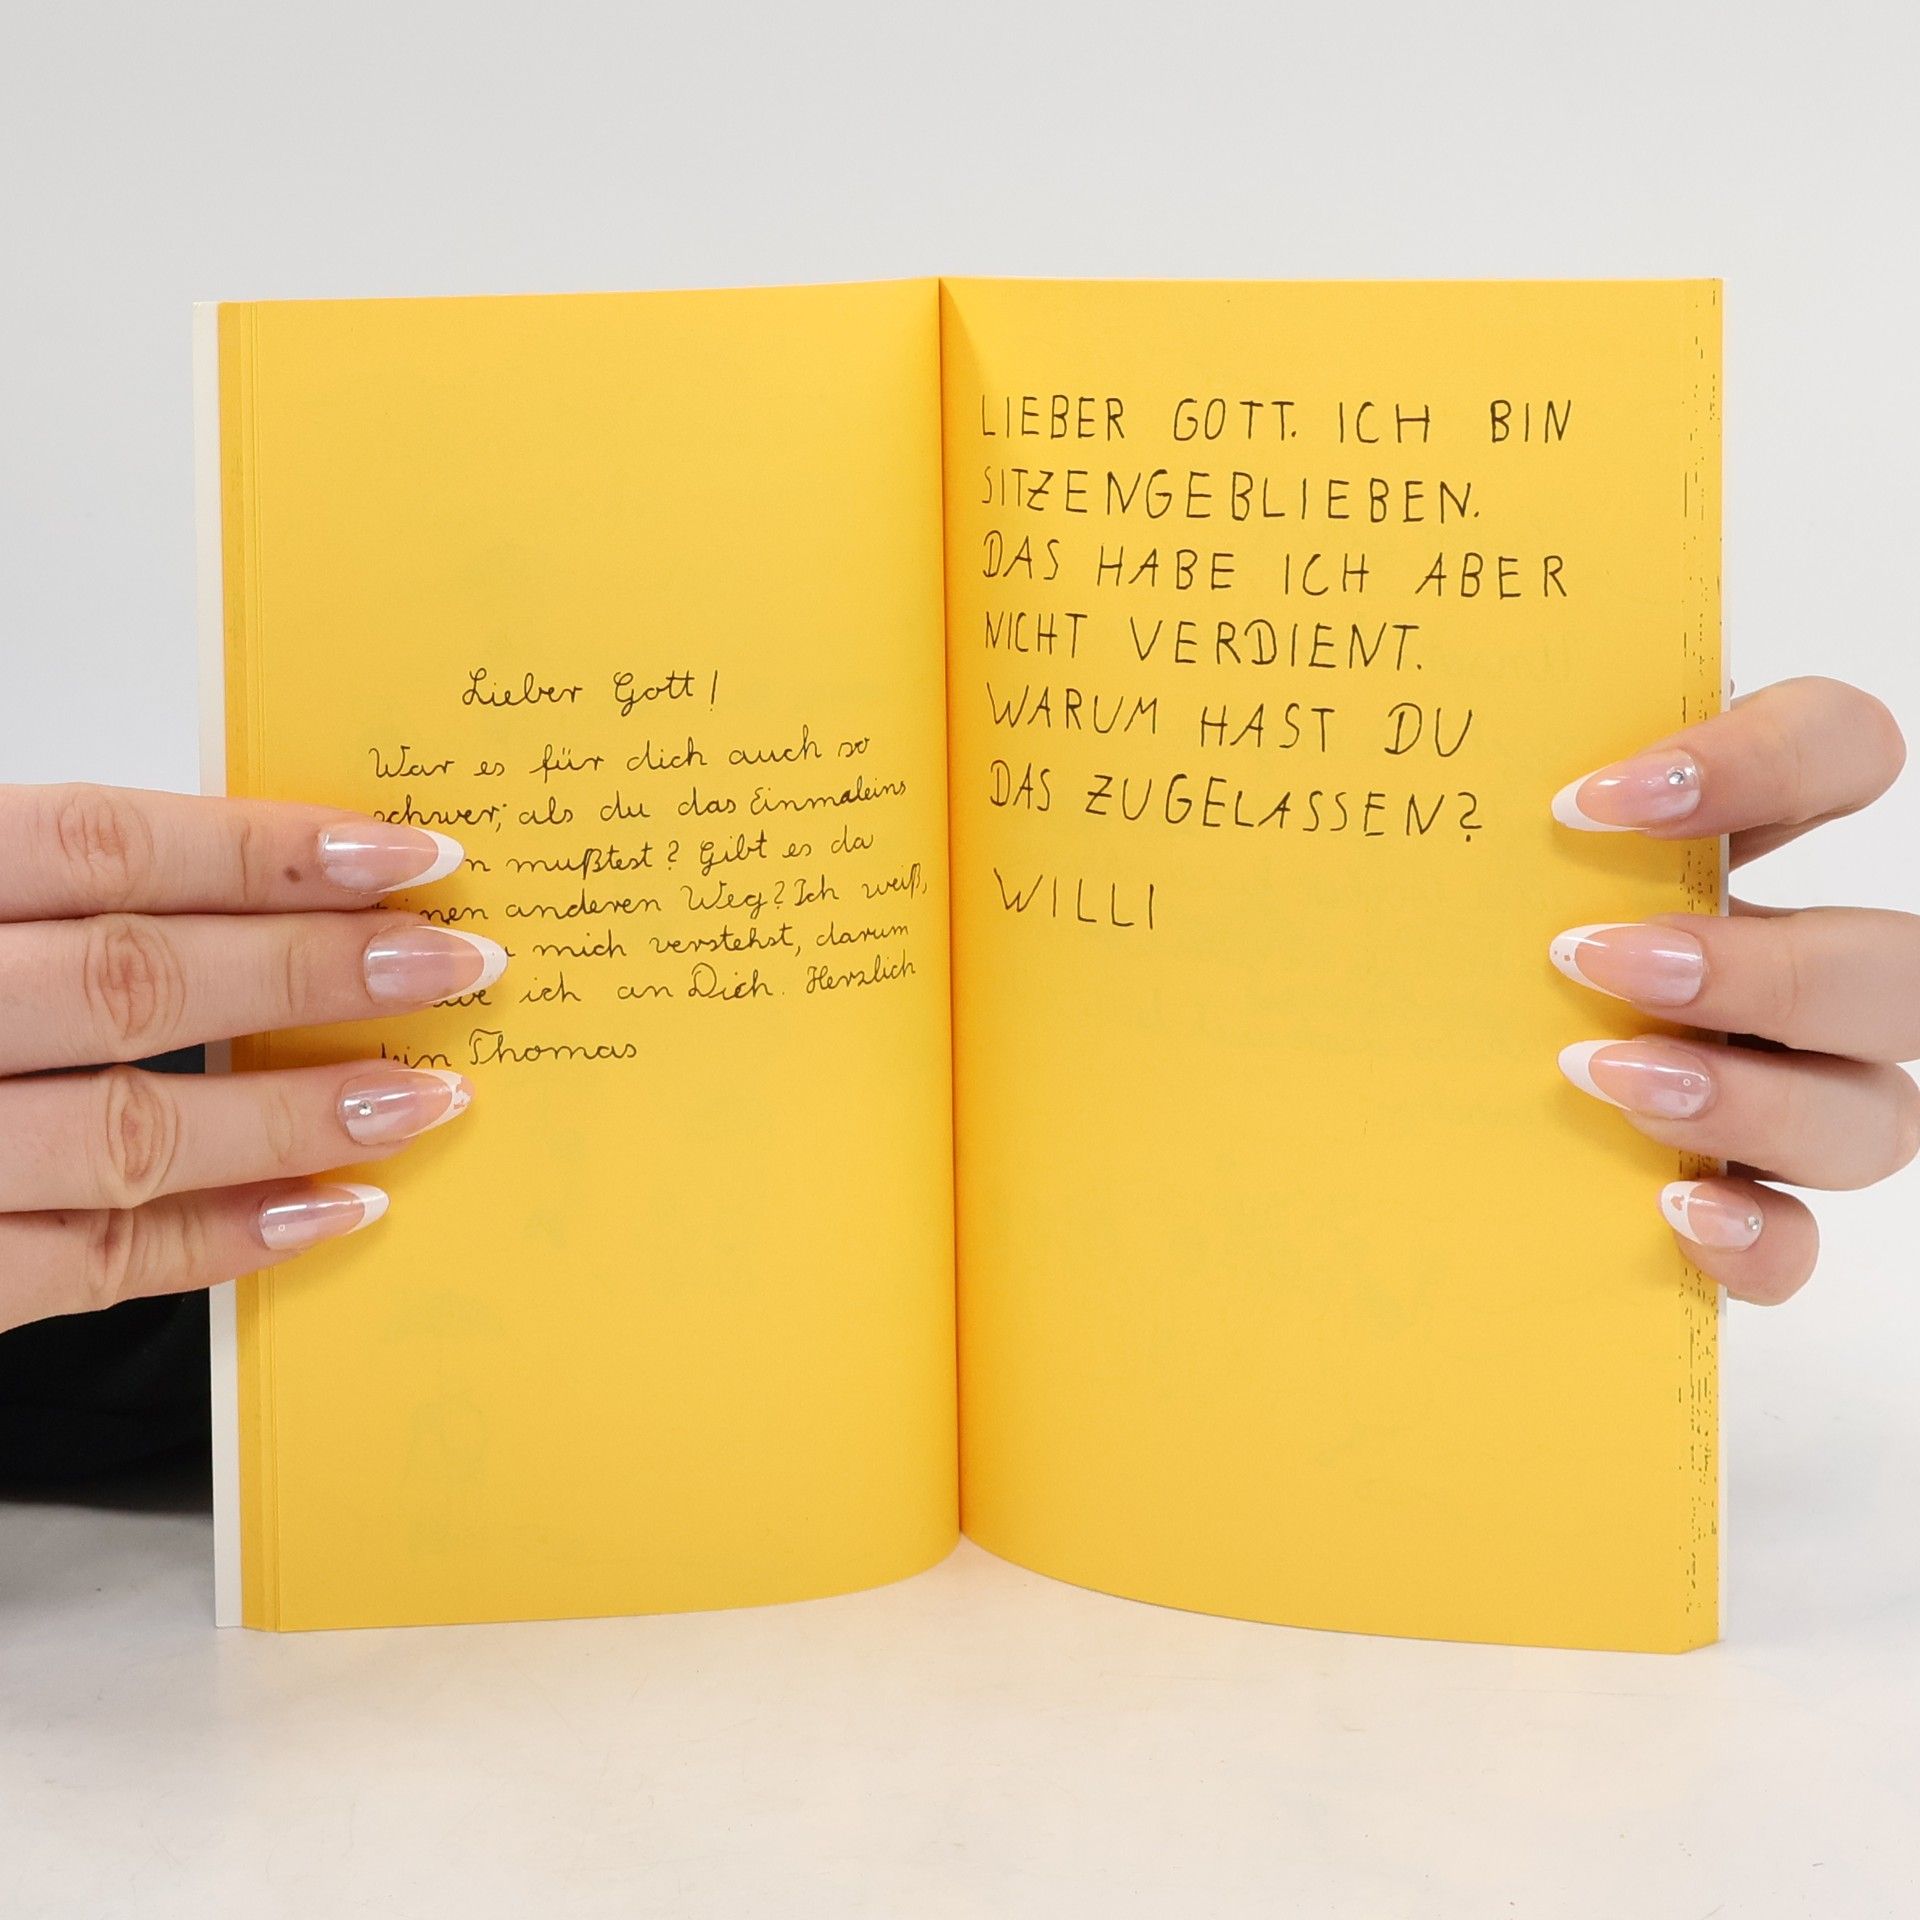 Lieber Gott!
War es für dich auch so
schwer, als du das Einmaleins
mußtest? Gibt es da
anderen Weg? Ich weiß,
mich verstehst, darum
ich an Dich. Herzlich
Thomas
LIEBER GOTT. ICH BIN
SITZENGEBLIEBEN.
DAS HABE ICH ABER
NICHT VERDIENT.
WARUM HAST DU
DAS ZUGELASSEN?
WILLI